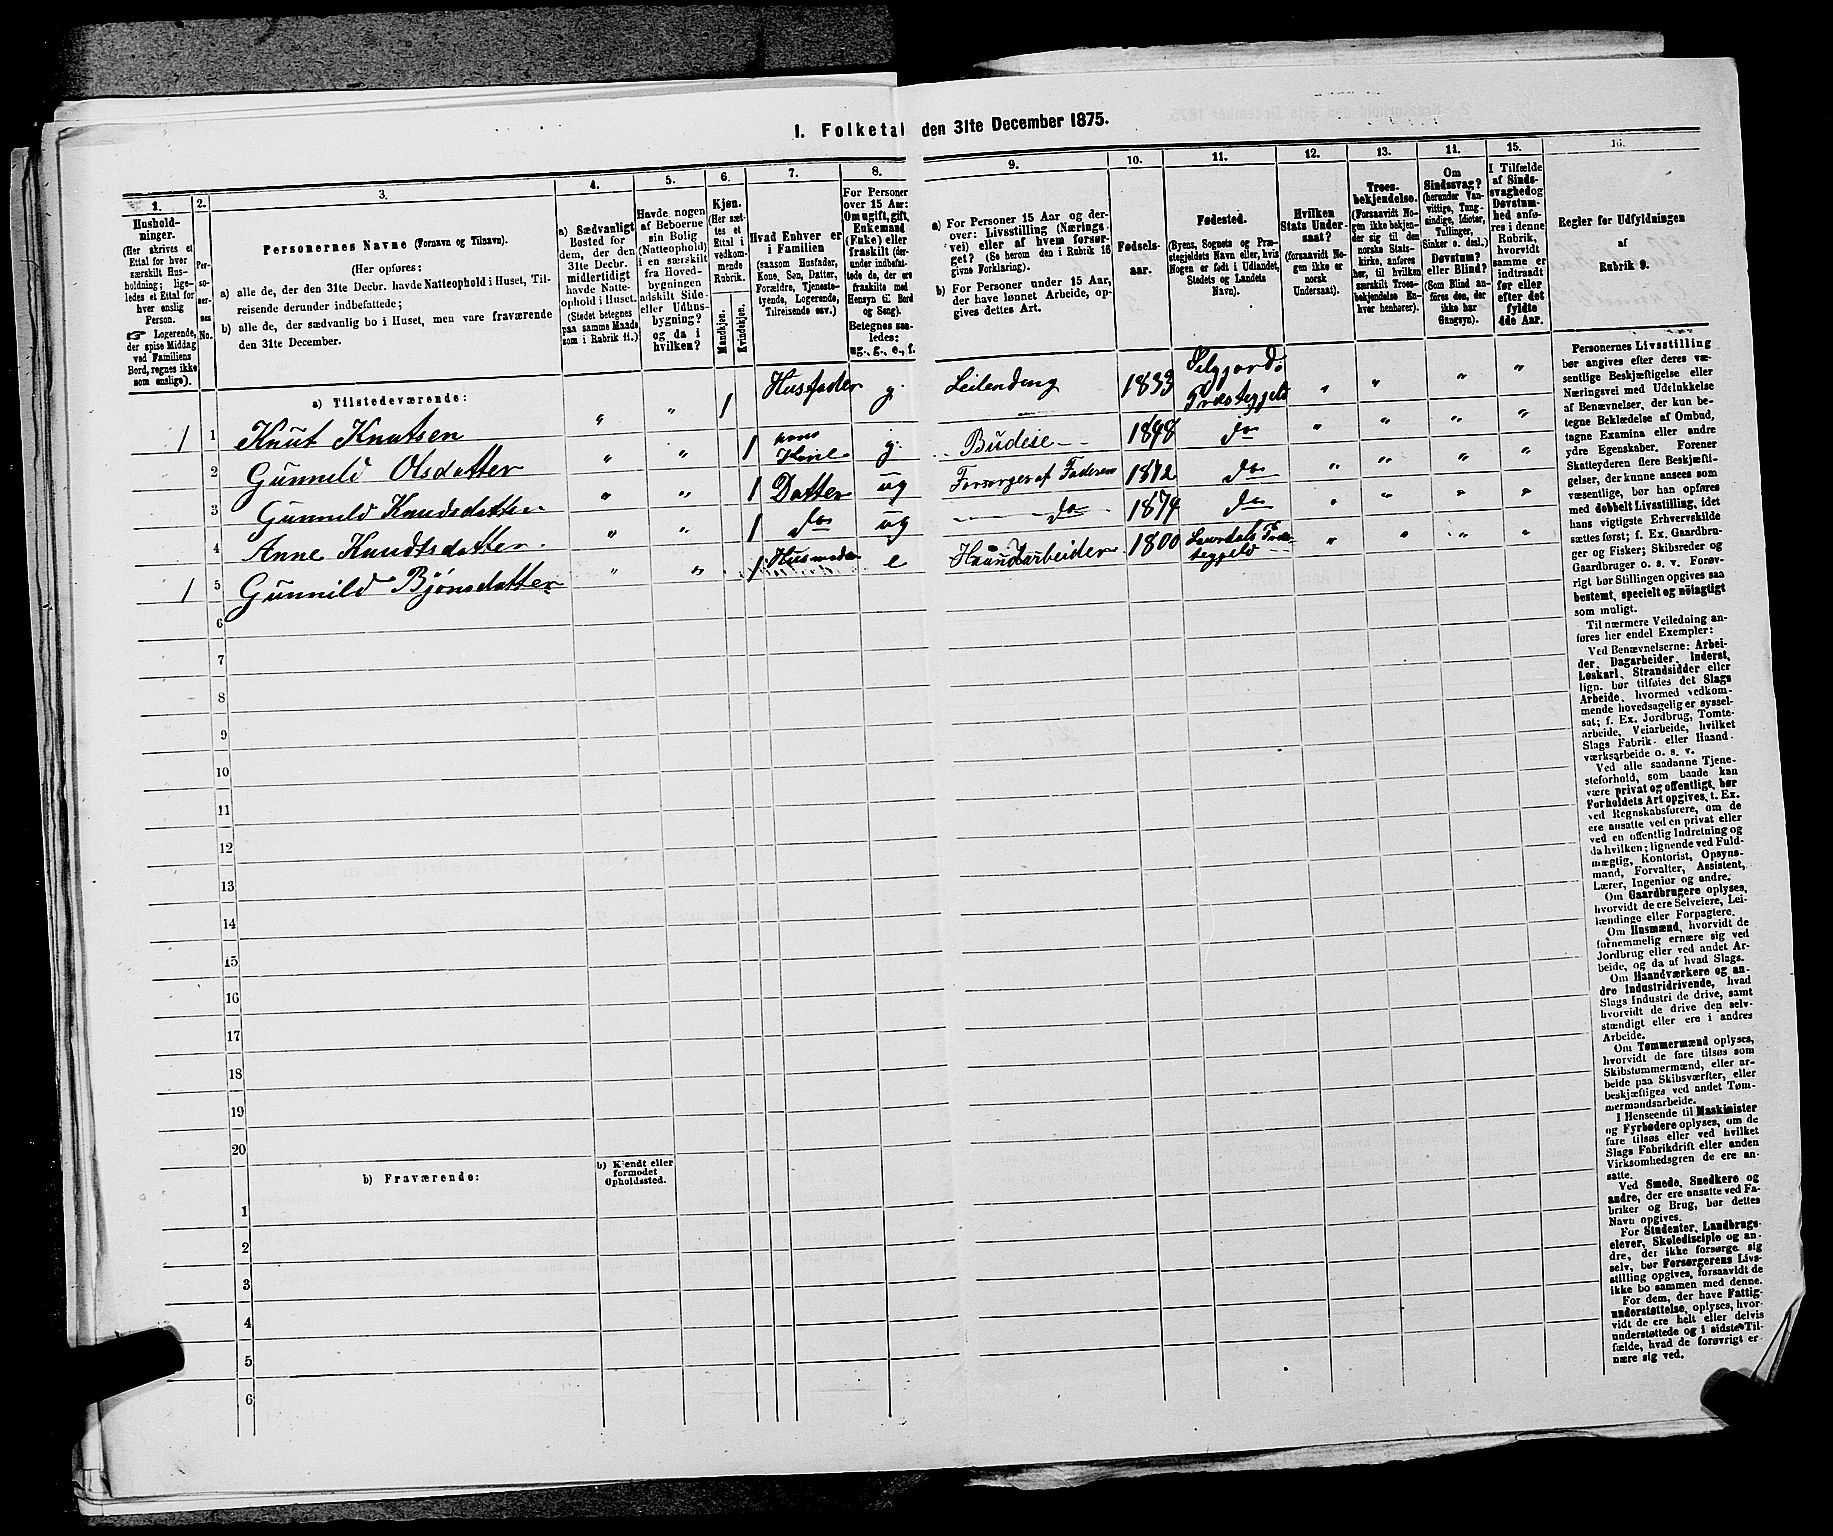 1. Folketal den 31te December 1875.
1.
2.
3.
4.
5.
6.
7.
8.
9.
10.
11.
12.
13.
14.
15.
16.
Hushold-
ninger.
(Her skrives et
Ettal for hver
særskilt Hus-
holdning; lige-
ledes et Ettal for
hver enslig
Person.
☞ Logerende,
der spise Middag
ved Familiens
Bord, regnes ikke
som enslige).
Per-
so-
ner-
nes
No.
Personernes Navne (Fornavn og Tilnavn).
(Her opføres:
a) alle de, der den 31te Decbr. havde Natteophold i Huset, Til-
reisende derunder indbefattede;
b) alle de, der sædvanlig bo i Huset, men vare fraværende
den 31te December.
a) Sædvanligt
Bosted for
dem, der den
31te Decbr.
midlertidigt
havde Natte-
ophold i Huset.
(Stedet betegnes
paa samme Maade
som i Rubrik 11.)
Havde nogen
af Beboerne
sin Bolig
(Natteophold)
i en særskilt
fra Hoved-
bygningen
adskilt Side-
eller Udhus-
bygning?
og da i
hvilken?
Kjøn.
(Her sæt-
tes et
Ettal i
vedkom-
mende
Rubrik.)
Mandkjøn.
Kvindekjøn.
Hvad Enhver er
i Familien
(saasom Husfader,
Kone, Søn, Datter,
Forældre, Tjeneste-
tyende, Logerende,
Tilreisende osv.)
For Personer
over 15 Aar:
Om ugift, gift,
Enkemand
(Enke) eller
fraskilt (der-
under indbefat-
tede de, der ere
fraskilte med
Hensyn til Bord
og Seng).
Betegnes saa-
ledes:
ug., g., e., f.
a) For Personer 15 Aar og der-
over: Livsstilling (Nærings-
vei) eller af hvem forsør-
get? (Se herom den i Rubrik 16
givne Forklaring).
b) For Personer under 15 Aar,
der have lønnet Arbeide, op-
gives dettes Art.
Fødsels-
aar.
Fødested.
(Byens, Sognets og Præ-
stegjeldets Navn eller, hvis
Nogen er født i Udlandet,
Stedets og Landets
Navn).
Hvilken
Stats Under-
saat?
(forsaavidt No-
gen ikke er
norsk
Undersaat).
Troes-
bekjendelse.
(Forsaavidt No-
gen ikke bekjen-
der sig til den
norske Stats-
kirke, anføres
her, til hvilken
særskilt Troes-
bekjendelse En-
hver henhører).
Om
Sindssvag?
(herunder Van-
vittige, Tung-
sindige, Idioter,
Tullinger,
Sinker o. desl.)
Døvstum?
eller Blind?
(Som Blind an-
føres den, der
ikke har
Gangsyn).
I Tilfælde
af Sinds-
svaghed og
Døvstum-
hed anfø-
res i denne
Rubrik,
hvorvidt
samme er
indtraadt
før eller
efter det
fyldte
4de Aar.
Regler for Udfyldningen
af
Rubrik 9.
a) Tilstedeværende:
1 1 Knut Knutsen " " 1 Husfader g. Leilending 1833 Silgjords Præstegjeld " " " "
2 Gunnild Olsdatter " " 1 hans g. Budeie 1848 do " " " "
3 Gunnild Knudsdatter " " 1 Datter ug Forsørges af Faderen 1872 do " " " "
4 Anne Knudtsdatter " " 1 do ug do 1874 do " " " "
1 5 Gunnild Bjønsdatter " " 1 Husmoder e Haandarbeider 1800 Laurdals Præ-
stegjeld " " " "
6
7
8
9
10
11
12
13
14
15
16
17
18
19
20
b) Fraværende:
b) Kjendt eller
formodet
Opholdssted.
1
2
3
4
5
6
Personernes Livsstilling
bør angives efter deres væ-
sentlige Beskjæftigelse eller
Næringsvei med Udelukkelse
af Benævnelser, der kun be-
tegne Beklædelse af Ombud,
tagne Examina eller andre
ydre Egenskaber. Forener
Skatteyderen flere Beskjæfti-
gelser, der kunne ansees som
væsentlige, bør han opføres
med dobbelt Livsstilling, idet
hans vigtigste Erhvervskilde
sættes først; f. Ex. Gaardbru-
ger og Fisker; Skibsreder og
Gaardbruger o. s. v. Forøv-
rigt bør Stillingen opgives saa
bestemt, specielt og nöiagtigt
som muligt.
Til nærmere Veiledning an-
føres her endel Exempler:
Ved Benævnelserne: Arbei-
der, Dagarbeider, Inderst,
Løskarl, Strandsidder eller
lign. bør tilføies det Slags
Arbeide, hvormed vedkom-
mende hovedsagelig er syssel-
sat; f. Ex. Jordbrug, Tomte-
arbeide, Veiarbeide, hvilket
Slags Fabrik- eller Haand-
værksarbeide o. s. v.
Ved alle saadanne Tjene-
steforhold, som baade kan
være privat og offentligt, bør
Forholdets Art opgives, t. Ex.
ved Regnskabsførere, om de
ere ansatte ved en privat eller
ved en offentlig Indretning og
da hvilken; lignende ved Fuld-
mægtig, Kontorist, Opsyns-
mand, Forvalter, Assistent,
Lærer, Ingeniør og andre.
Om Gaardbrugere oplyses,
hvorvidt de ere Selveiere, Lei-
lændinge eller Forpagtere.
Om Husmænd, hvorvidt de
fornemmelig ernære sig ved
Jordbrug eller ved andet Ar-
beide, og da af hvad Slags.
Om Haandværkere og an-
dre Industridrivende, hvad
Slags Industri de drive, samt
hvorvidt de drive den selv-
stændigt eller ere i andres
Arbeide.
Om Tømmermænd oplyses,
hvorvidt de fare tilsøs som
Skibstømmermænd, eller ar-
beide paa Skibsværfter, eller
beskjæftiges ved andet Tøm-
mermandsarbeide.
I Henseende til Maskinister
og Fyrbødere oplyses, om de
fare tilsøs eller ved hvilket
Slags Fabrikdrift eller anden
Virksomhedsgren de ere an-
satte.
Ved Smede, Snedkere og
andre, der ere ansatte ved Fa-
briker og Brug, bør dettes
Navn opgives.
For Studenter, Landbrugs-
elever, Skoledisciple og an-
dre, der ikke forsørge sig
selv, bør Forsørgerens Livs-
stilling opgives, forsaavidt de
ikke bo sammen med denne.
For dem, der have Fattig-
understøttelse, oplyses, hvor-
vidt de ere helt eller delvis
understøttede og i sidste Til-
fælde, hvad de forøvrigt er-
nære sig ved.